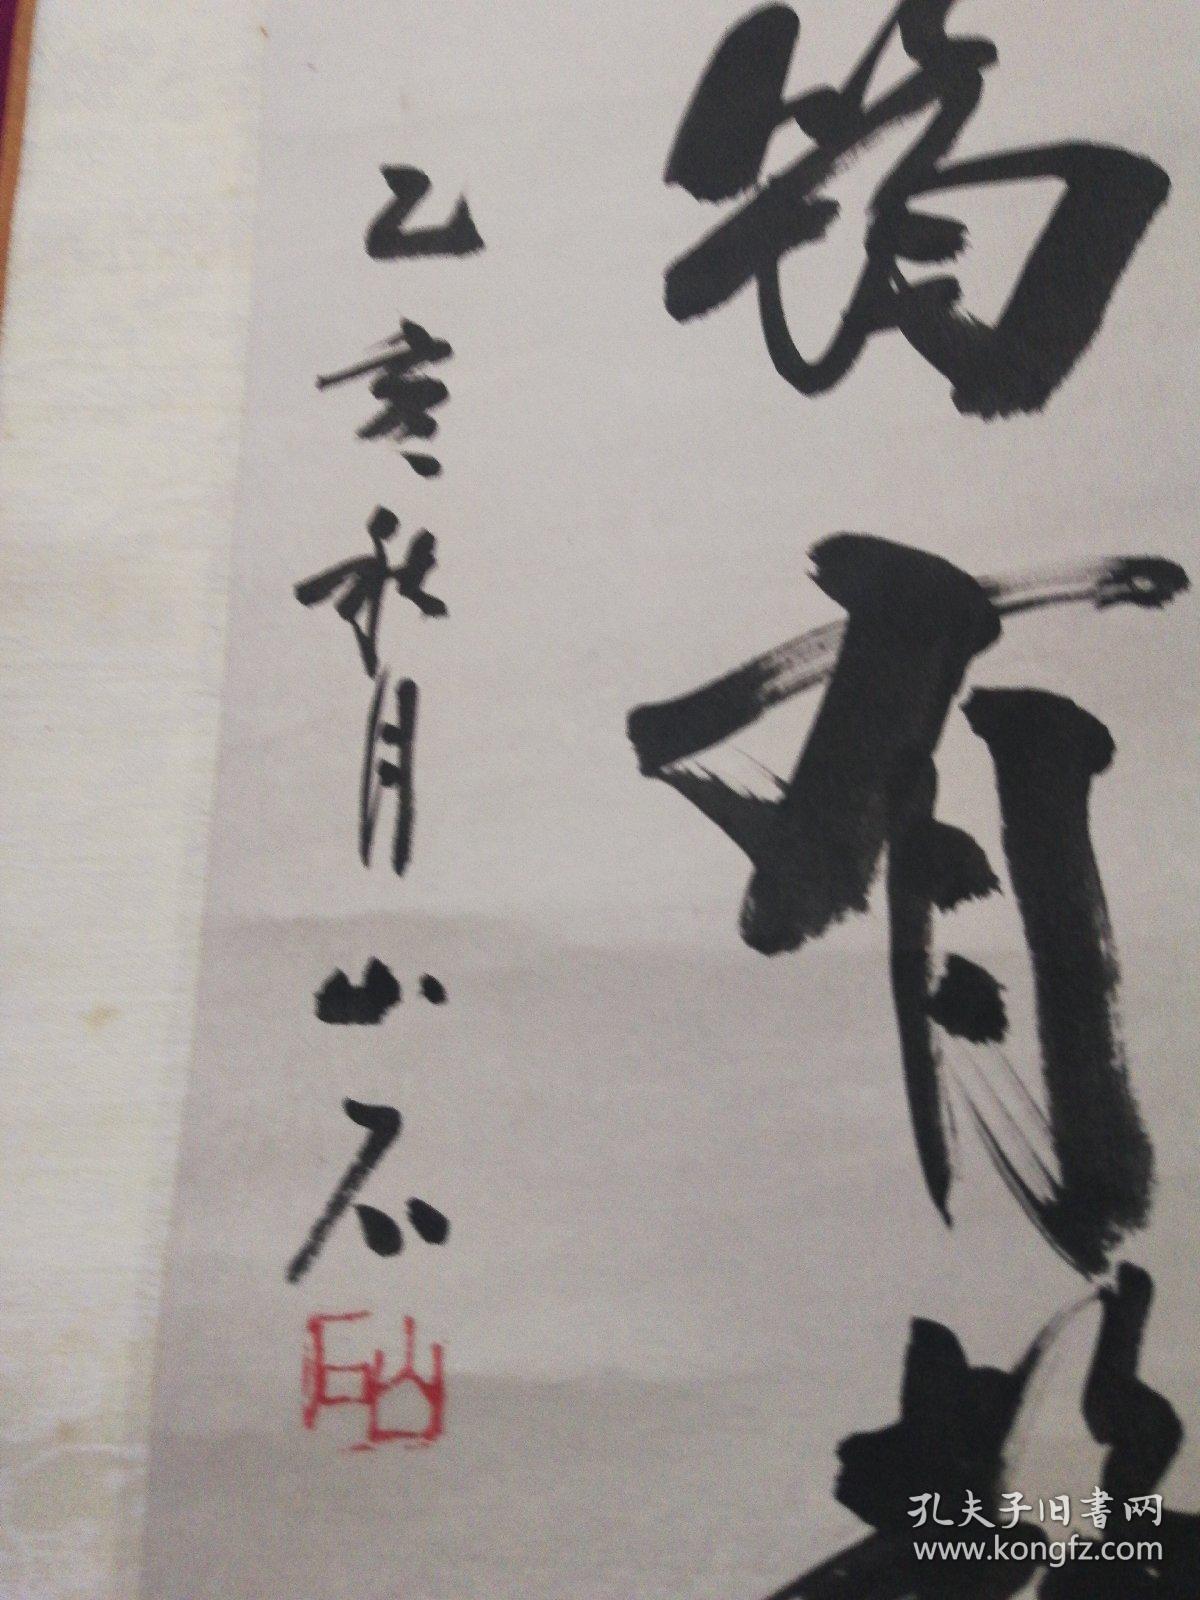 有
乙亥秋月山石
山石
孔夫子旧書网
www.kongfz.com